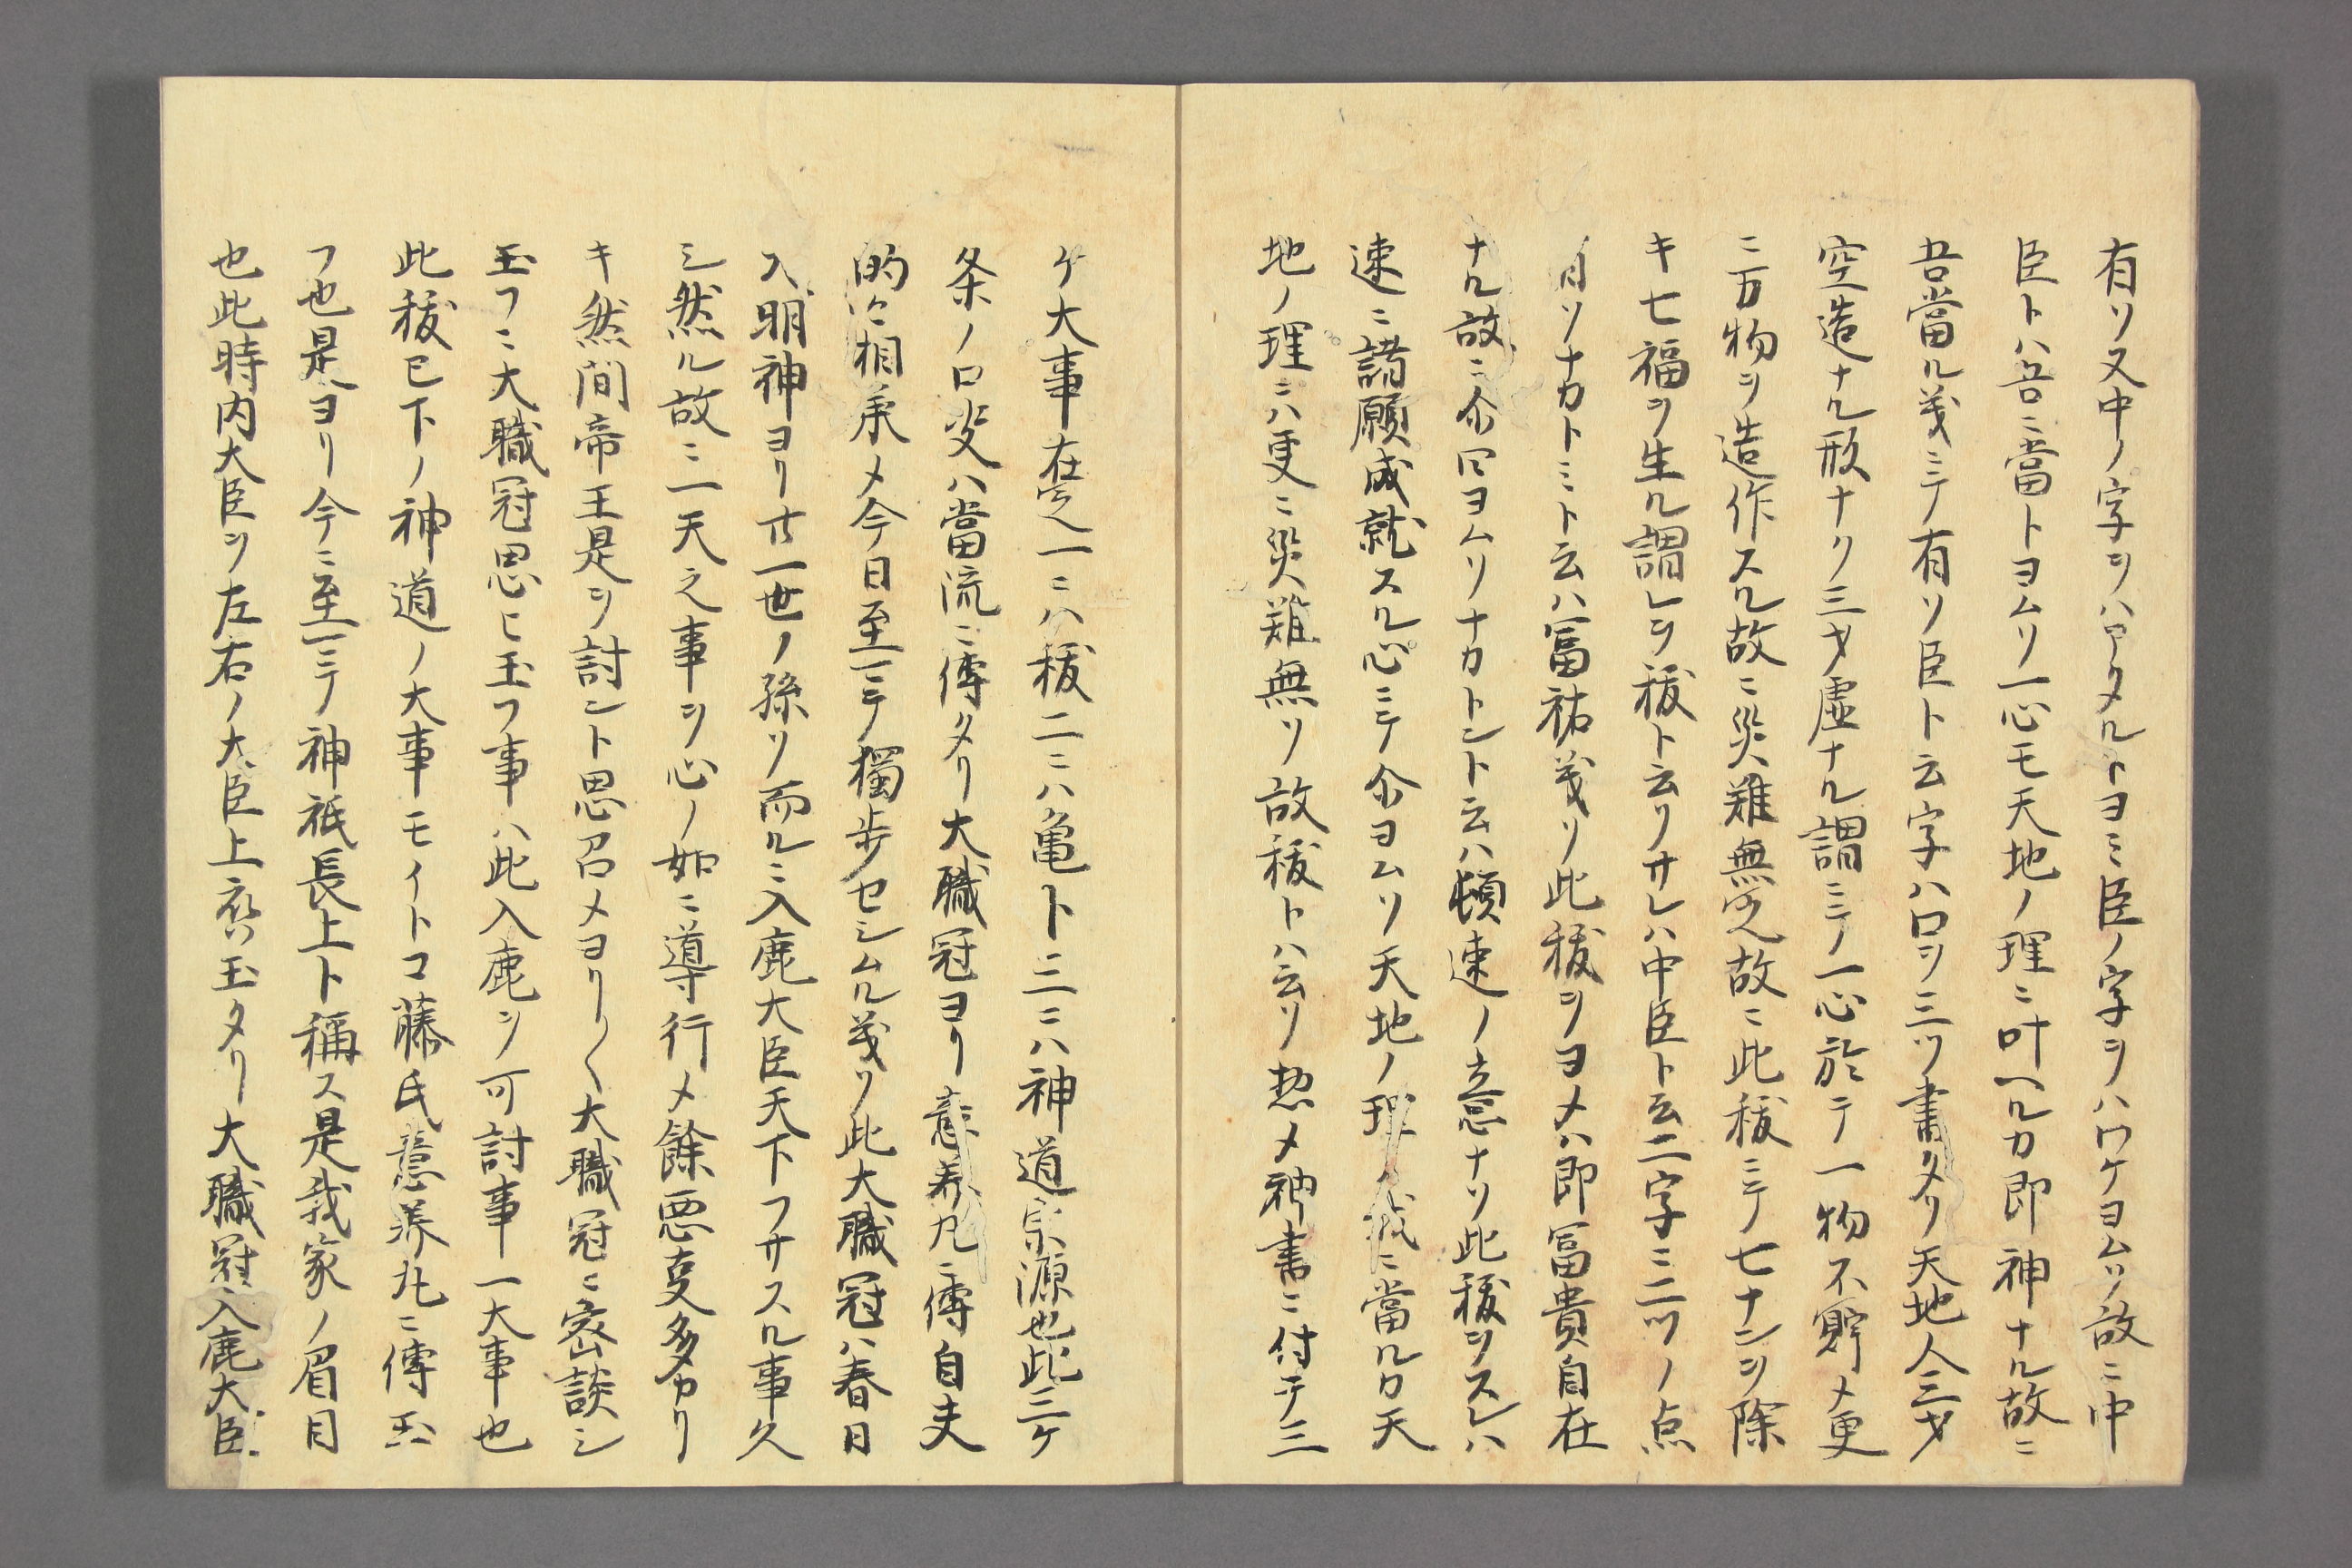 有リ又中ノ字ヲハアタルトヨミ臣ノ字ヲハワケヨムリ故ニ中
臣トハ吾ニ當トヨムリ一心モ天地ノ理ニ叶ヘルカ即神ナル故ニ
吾當ル義ニテ有リ臣ト云字ハ口ヲ三ツ書タリ天地人三才
空造ナル形ナク三才虚ナル謂ニテノ一心於テ一物不貯メ更
ニ万物ヲ造作スル故ニ災難無之故ニ此秡ニテ七ナンヲ除
キ七福ヲ生ル謂レヲ秡ト云リサレハ中臣ト云二字ニ二ツノ点
有リナカトミト云ハ冨祐義リ此秡ヲヨメハ即冨貴自在
ナル故ニ尒ヨムリナカトント云ハ頓速ノ意ナリ此秡ヲスレハ
速ニ諸願成就スル心ニテ尒ヨムリ天地ノ理ノ ニ當ルカ天
地ノ理ニハ更ニ災難無リ故秡トハ云リ惣メ神書ニ付テ三
ケ大事在之一ニハ秡二ニハ亀ト三ニハ神道宗源也此三ケ
条ノ口受ハ當流ニ傳タリ大職冠ヨリ意美丸ニ傳自夫
的々相承メ今日至ニテ獨歩セシムル義リ此大職冠ハ春日
大明神ヨリ廿一世ノ孫リ而ルニ入鹿大臣天下フサスル事久
シ然ル故ニ一天之事ヲ心ノ如ニ導行メ餘悪変多カリ
キ然間帝王是ヲ討ント思召メヨリ〱大職冠ニ密談シ
玉フニ大職冠思ヒ玉フ事ハ此入鹿ヲ可討事一大事也
此秡已下ノ神道ノ大事モイトコ藤氏意美丸ニ傳玉
フ也是ヨリ今ニ至ニテノ神祇長上ト稱ス是我家ノ眉目
也此時内大臣ヲ左右ノ大臣上ニ玉タリ大職冠入鹿大臣